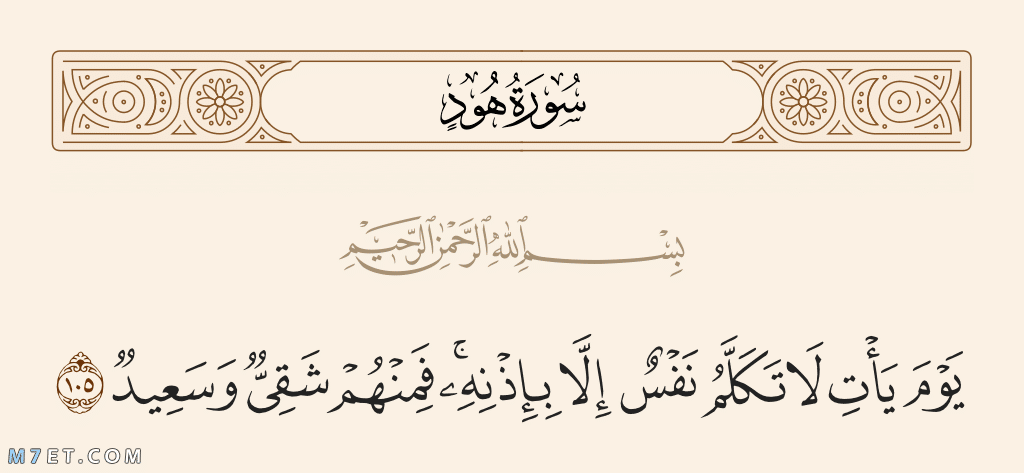 سُورَةُ هُودٍ
بِسْمِ ٱللَّهِ ٱلرَّحْمَٰنِ ٱلرَّحِيمِ
يَوْمَ يَأْتِ لَا تَكَلَّمُ نَفْسٌ إِلَّا بِإِذْنِهِۦۚ فَمِنْهُمْ شَقِىٌّ وَسَعِيدٌ ١٠٥
M7ET.COM